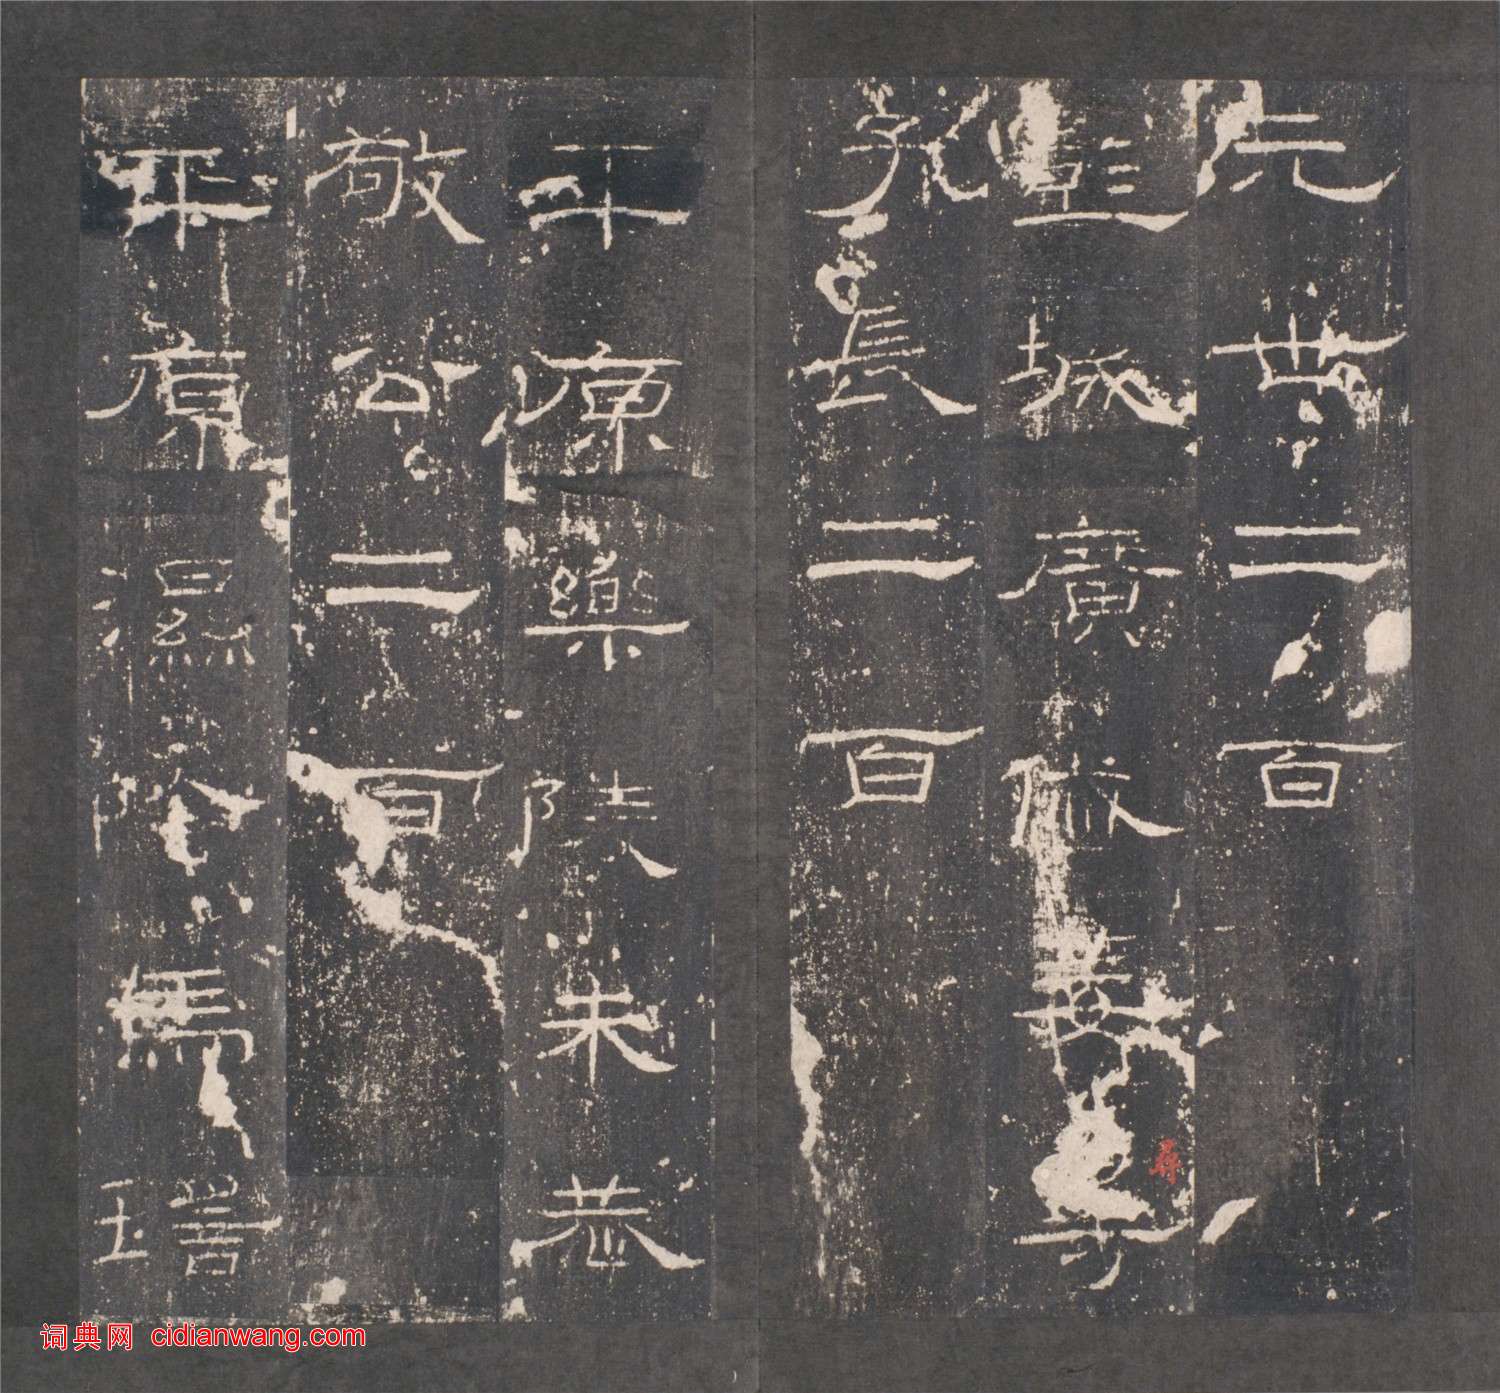 元世二百
彭城廣戚姜尋
尋
子長二百
平原樂陵朱恭
敬公二百
平原濕陰馬瑤
词典网 cidianwang.com